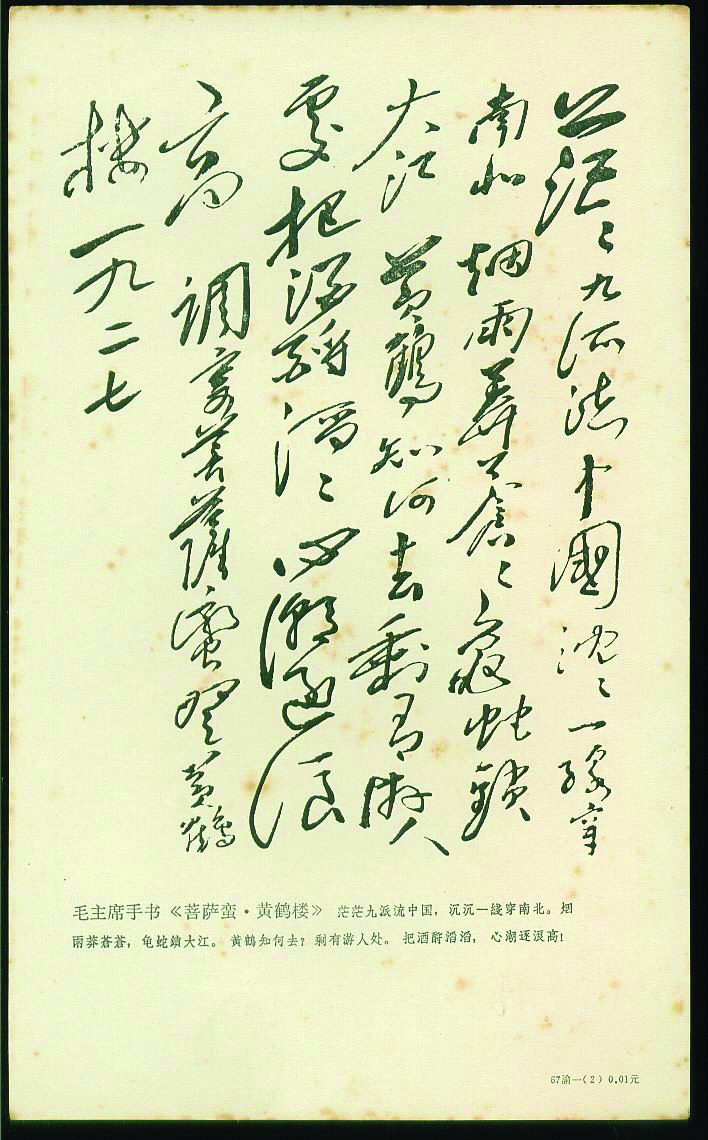 茫〻九派流中國沈〻一線穿
南北烟雨莽蒼〻龜蛇鎖
大江黃鶴知何去剩有游人
處把酒酹滔〻心潮逐浪
高 調寄菩薩蠻登黃鶴
樓一九二七
毛主席手书《菩萨蛮·黄鹤楼》 茫茫九派流中国，沉沉一綫穿南北。烟
雨莽苍苍，龟蛇鎖大江。黄鹤知何去？剩有游人处。把酒酹滔滔，心潮逐浪高！
67渝—(2) 0.01元